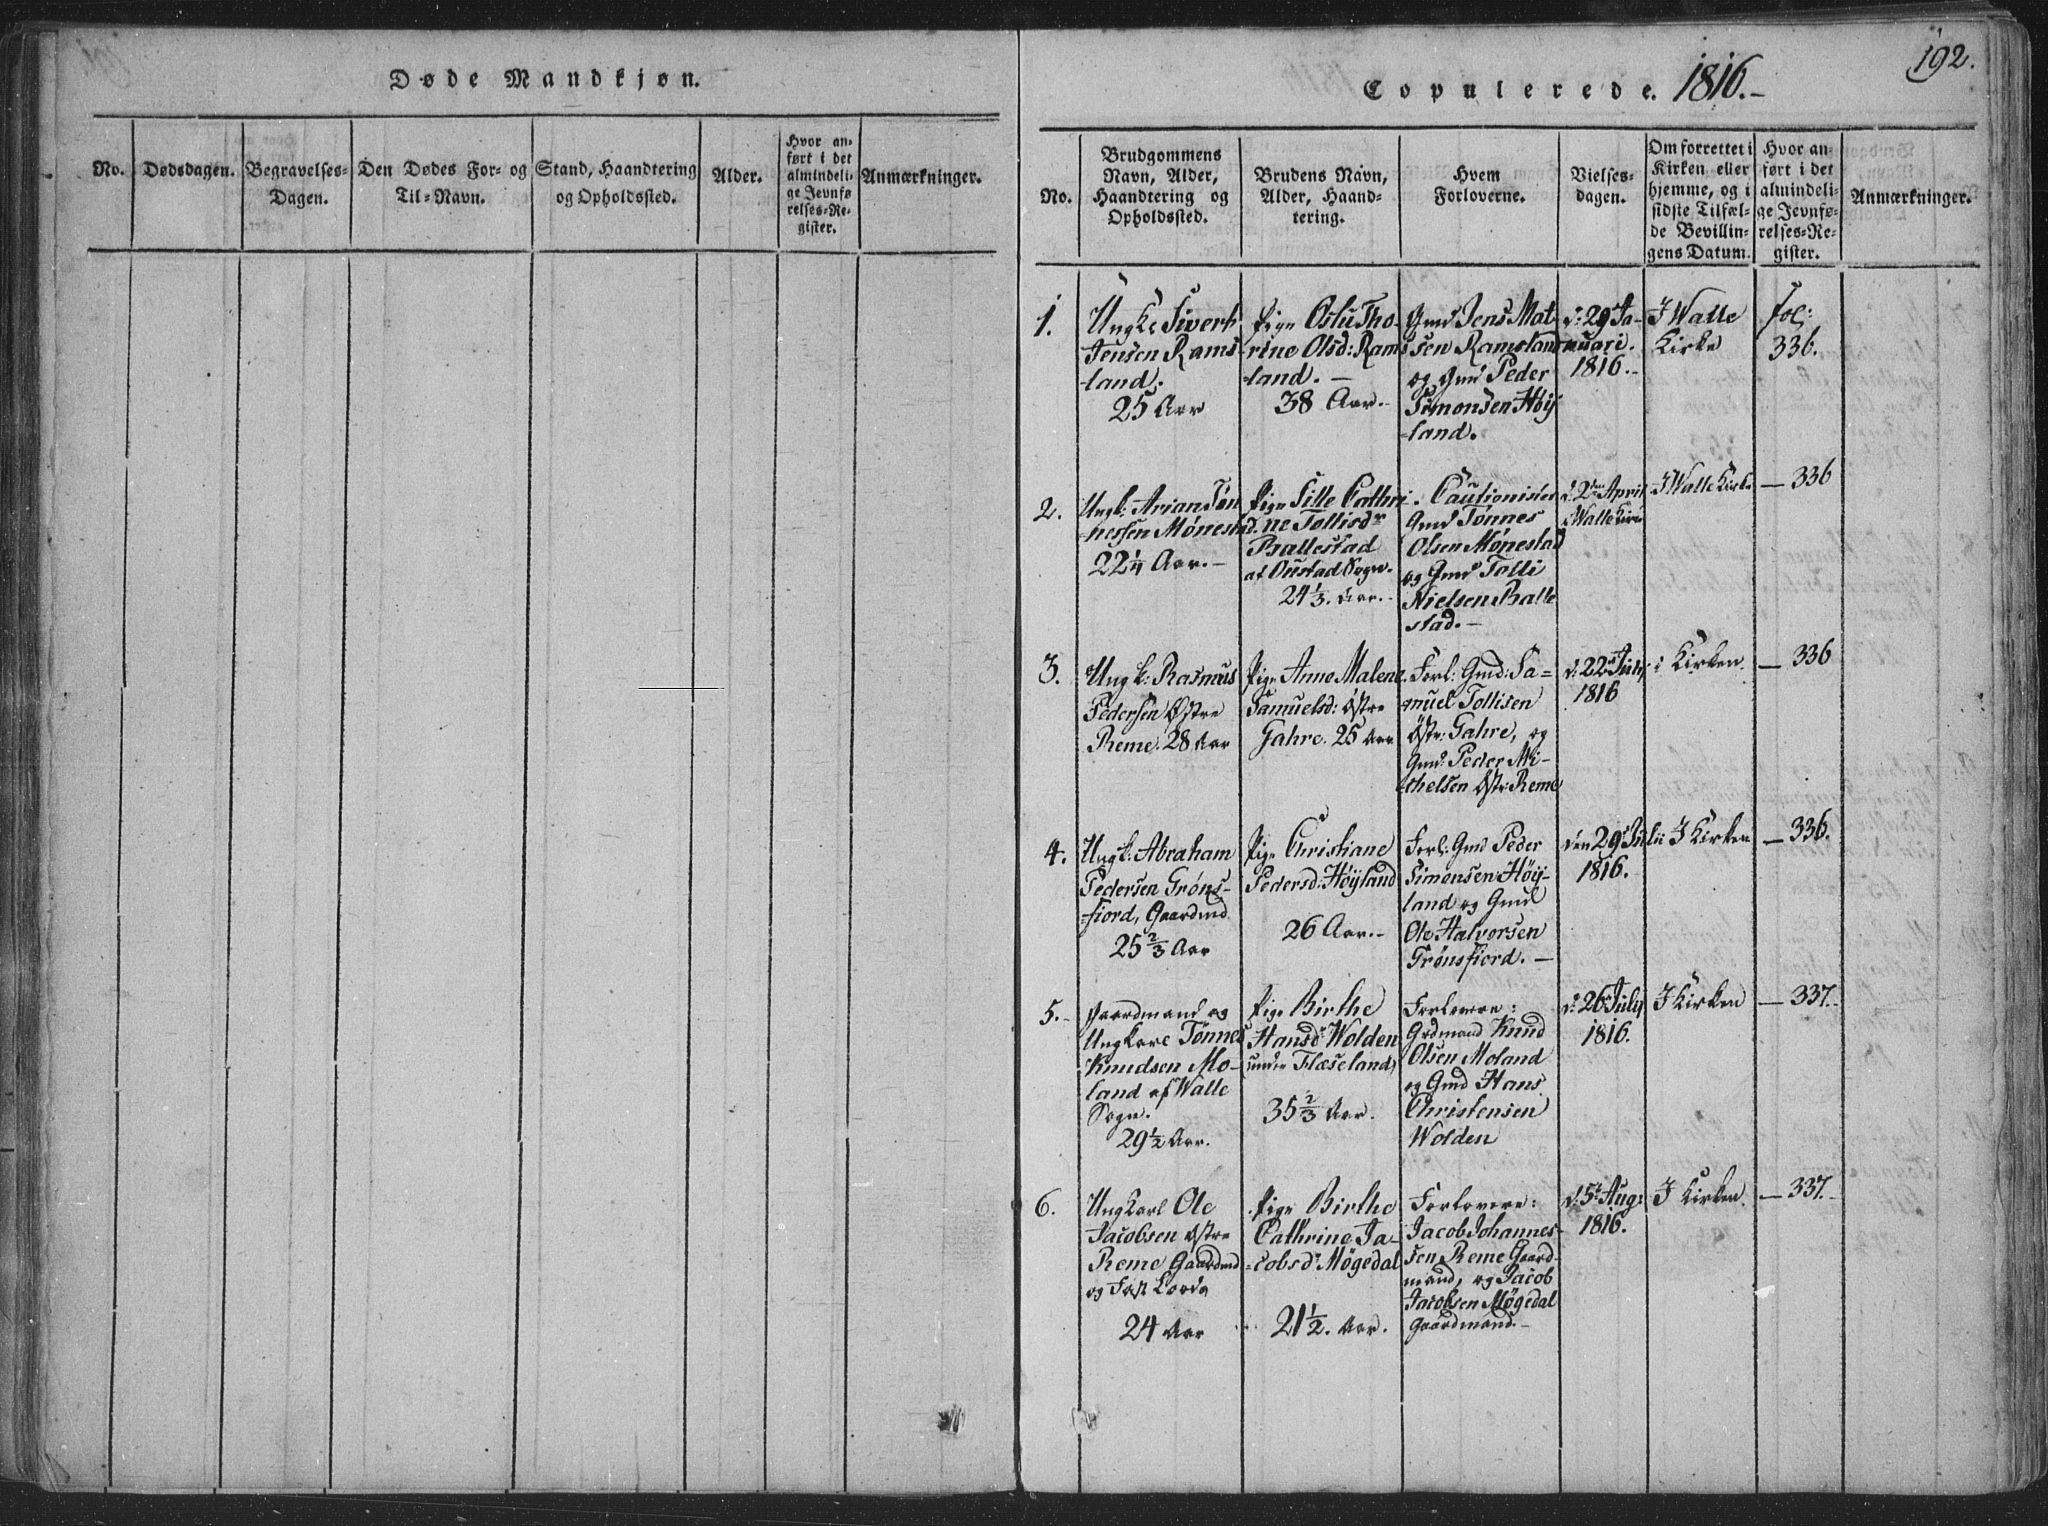 Døde Mandkjøn.
No.
Dødsdagen.
Begravelses-
Dagen.
Den Dødes For- og
Til-Navn.
Stand, Haandtering
og Opholdssted.
Alder.
Hvor an-
ført i det
almindeli-
ge Jevnfø-
relses-Re-
gister.
Anmærkninger.
192.
Copulerede. 1816.-
No.
Brudgommens
Navn, Alder,
Haandtering og
Opholdssted.
Brudens Navn,
Alder, Haand-
tering.
Hvem
Forloverne.
Vielses-
dagen.
Om forrettet i
Kirken eller
hjemme, og i
sidste Tilfæl-
de Bevillin-
gens Datum.
Hvor an-
ført i det
almindeli-
ge Jevnfø-
relses-Re-
gister.
Anmærkninger.
1.
Ungk: Sivert
Jensen Rams
-land.
25 Aar
Pige Oslu Tho-
rine Olsd: Rams
land. -
38 Aar.-
Gmd Jens Mat
sen Ramsland
og Gmd Peder
Simonsen Høy
-land.
d: 29 Ja-
nuari.
1816.-
I Walle
Kirke
fol:
336.
2.
Ungk: Arian Tøn
-nessen Mønestad
22¼ Aar.-
Pige Sille Cathri
ne Tollisdr
Ballestad
af Oustad Sogn.
24⅓ Aar.-
Cautionister
Gmd Tønnes
Olsen Mønestad
og Gmd Tolli
Nielsen Balle
stad.-
d: 2den April
i Walle Kirke
I Walle Kirke
- 336
3.
Ungk: Rasmus
Pedersen Østre
Reme. 28 Aar
Pige Anne Malene
Samuelsd: Østre
Jahre. 25 Aar
Forl: Gmd: Sa=
muel Tollisen
Østr: Jahre, og
Gmd: Peder Mi-
chelsen Østr: Reme
d: 22 July
1816
i Kirken.
- 336
4.
Ungk: Abraham
Pedersen Grøns-
-fiord, Gaardmd
25⅔ Aar
Pige Christiane
Pedersd: Høyland
26 Aar.-
Forl: Gmd Peder
Simonsen Høy-
land og Gmd
Ole Halvorsen
Grønsfiord. -
den 29 Julii
1816.
I Kirken
- 336.
5.-
Gaardmand og
Ungkarl Tønnes
Knudsen Mo-
land af Walle
Sogn.
29½ Aar.
Pige Birthe
Hansdr Wolden
under Flæseland,
35⅔ Aar.
Forlovere:
Grdmand Knud
Olsen Moland
og Gmd Hans
Christensen
Wolden
d: 26 July
1816.
I Kirken
- 337.
6.
Ungkarl Ole
Jacobsen Østre
Reme Gaardmd
og
24 Aar
Pige Birthe
Cathrine Ja-
-cobsdr Møgedal
21½. Aar.
Forlovere:
Jacob Johannes-
sen Reme Gaard-
mand, og Jacob
Jacobsen Møgedal
Gaardmand.-
d: 5t Aug:
1816.
I Kirken
- 337.